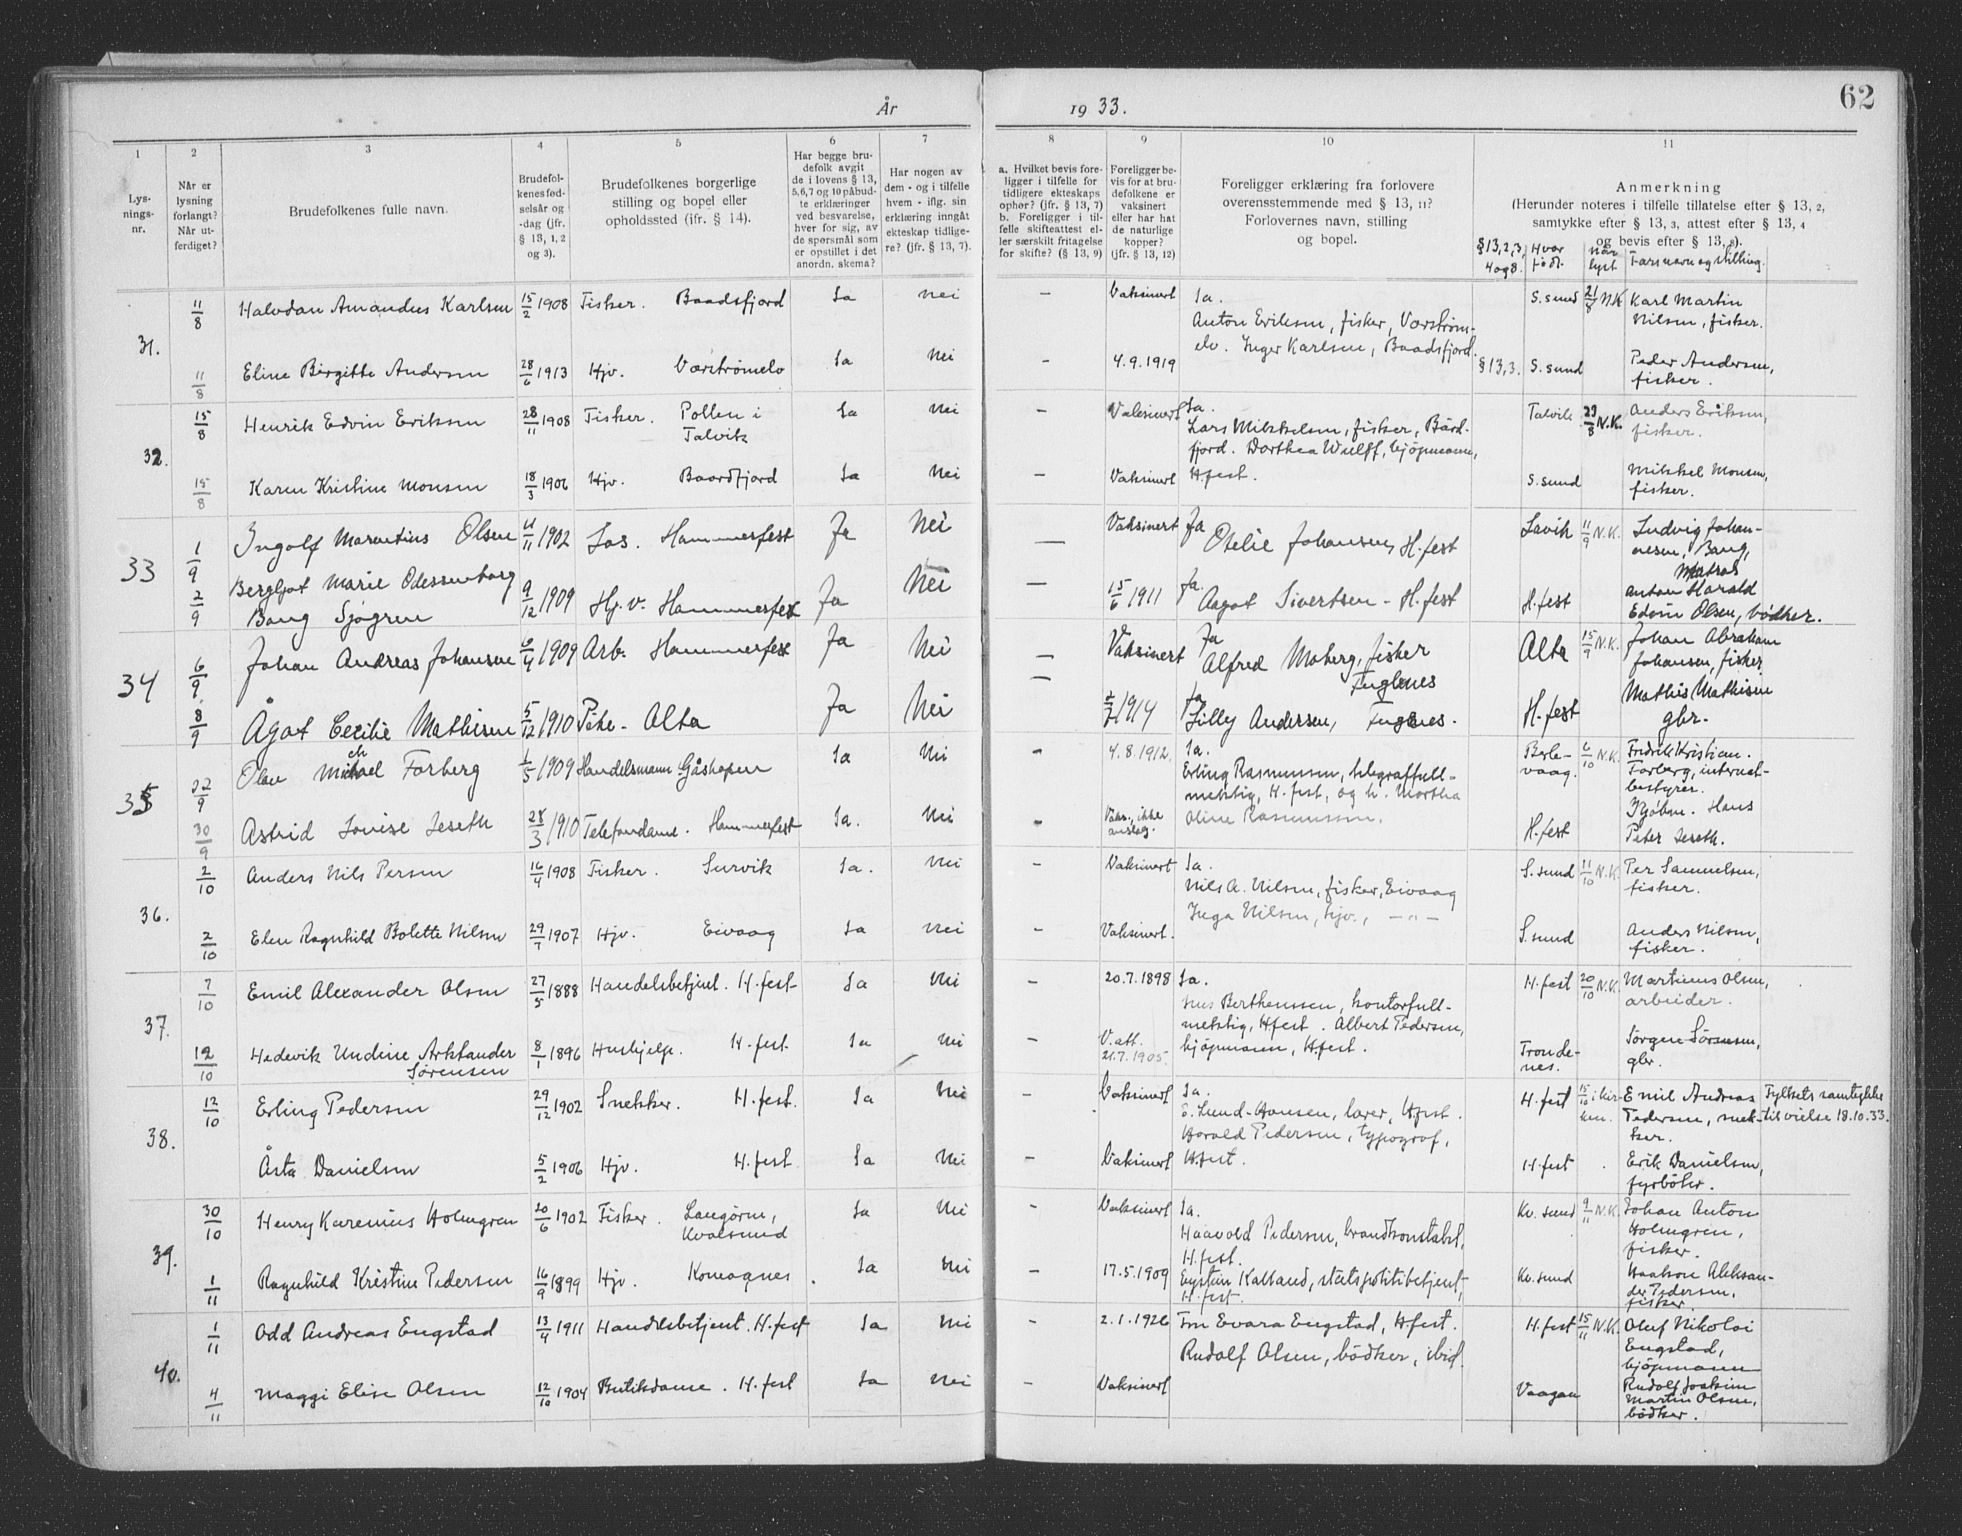 År 1933.
62
1
2
3
4
5
6
7
8
9
10
11
Lys-
nings-
nr.
Når er
lysning
forlangt?
Når ut-
ferdiget?
Brudefolkenes fulle navn.
Brudefol-
kenes fød-
selsår og
-dag (jfr.
§ 13, 1, 2
og 3).
Brudefolkenes borgerlige
stilling og bopel eller
opholdssted (ifr. § 14).
Har begge bru-
defolk avgit
de i lovens § 13,
5,6,7 og 10 påbud-
te erklæringer
ved besvarelse,
hver for sig, av
de spørsmål som
er opstillet i det
anordn. skema?
Har nogen av
dem - og i tilfelle
hvem - iflg. sin
erklæring inngått
ekteskap tidlige-
re? (jfr. § 13, 7).
a. Hvilket bevis fore-
ligger i tilfelle for
tidligere ekteskaps
ophør? (jfr. § 13, 7)
b. Foreligger i til-
felle skifteattest el-
ler særskilt fritagelse
for skifte? (§ 13, 9)
Foreligger be-
vis for at bru-
defolkene er
vaksinert
eller har hat
de naturlige
kopper?
(jfr. § 13, 12)
Foreligger erklæring fra forlovere
overensstemmende med § 13, 11?
Forlovernes navn, stilling
og bopel.
Anmerkning
(Herunder noteres i tilfelle tillatelse efter § 13, 2,
samtykke efter § 13, 3, attest efter § 13, 4
og bevis efter § 13, 8).
§ 13,2,3, 4 og 8.
Hvor født.
Når lyst
Farsnavn og stilling.
31.
11/8 Halvdan Amandus Karlsen 15/2 1908 Fisker. Baadsfjord Ja Nei — Vaksinert Ja. S.sund 21/8 N.K. Karl Martin
Anton Eriksen, fisker, Vorstrøm- Nilsen, fisker.
elv. Inger Karlsen, Baadsfjord.
11/8 Eline Birgitte Andersen 28/6 1913 Hjv. Vorstrømelv Ja Nei — 4.9.1919 § 13,3. S.sund Peder Andersen,
fisker.
32.
15/8 Henrik Edvin Eriksen 28/11 1908 Fisker. Pollen i Ja Nei — Vaksinert Ja. Talvik 23/8 N.K. Anders Eriksen,
Talvik Lars Mikkelsen, fisker, Bård- fisker.
fjord. Dorthea Wulff, kjøpmann,
15/8 Karen Kristine Monsen 18/3 1906 Hjv. Baardfjord Ja Nei — Vaksinert H.fest. S.sund Mikkel Monsen,
fisker.
33
1/9 Ingolf Marentius Olsen 11/11 1902 Los. Hammerfest Ja Nei — Vaksinert Ja Lavik 11/9 N.K. Ludvig Johan-
Otelie Johansen, H.fest nesen, Bang,
Matros
2/9 Bergljot Marie Odessenborg 9/12 1909 Hj.v. Hammerfest Ja Nei — 15/6 1911 Ja. H.fest Anton Harald
Bang Sjøgren Aagot Sivertsen - H.fest Edvin Olsen, bødker.
34
6/9 Johan Andreas Johansen 6/4 1909 Arb. Hammerfest Ja Nei — Vaksinert Ja Alta 15/9 N.K. Johan Abraham
Alfred Moberg, fisker Johansen, fisker
Fuglenes
8/9 Ågot Cecilie Mathisen 5/12 1910 Pike - Alta Ja Nei — 1914 Ja H.fest Mathis Mathisen
Lilly Andersen, Fuglenes. gbr.
35
22/9 Olav Michael Forberg 1/5 1909 Handelsmann Gåshopen Ja Nei - 4.8.1912. Ja. Berle- 6/10 N.K. Fredrik Kristian.
Erling Rasmussen, telegraffull- vaag. Forberg, internat-
mektig, H.fest, og h. Martha bestyrer.
30/9 Astrid Lovise Jeseth 28/3 1910 Telefondame. Hammerfest Ja. Nei - Vaks., ikke Oline Rasmussen. H.fest Kjøbm. Hans
anslag. Peter Jeseth.
36.
2/10 Anders Nils Persen 16/4 1908 Fisker. Survik Ja. Nei - Vaksinert Ja. S.sund 11/10 N.K. Per Samuelsen,
Nils A. Nilsen, fisker, Eivaag fisker.
Inga Nilsen, hjv., —"—
2/10 Elen Ragnhild Bolette Nilsen 29/1 1907 Hjv. Eivaag Ja Nei - Vaksinert. S.sund Anders Nilsen,
fisker.
37.
7/10 Emil Alexander Olsen 27/5 1888 Handelsbetjent. H.fest Ja Nei - 20.7.1898 Ja. H.fest 20/10 N.K. Martinus Olsen,
Berthenssen, kontorfull- arbeider.
mektig, H.fest. Albert Pedersen,
12/10 Hedevik Undine Arktander 8/1 1896 Hushjelp. H.fest Ja Nei - V.att. kjøpmann, H.fest. Tronde- Jørgen Sørensen,
Sørensen 21.7.1905. nes. gbr.
38.
12/10 Erling Pedersen 29/12 1902 Snekker. H.fest. Ja Nei - Vaksinert Ja. H.fest 15/10 i kir- Emil Andreas Fylkets samtykke
Lund-Hansen, lærer, H.fest. ken. Pedersen, snek- til vielse 18.10.33.
Harald Pedersen, typograf, ker.
Åsta Danielsen 5/2 1906 Hjv. H.fest Ja Nei - Vaksinert H.fest. H.fest Erik Danielsen,
fyrbøter.
39.
30/10 Henry Karenius Holmgren 20/6 1902 Fisker. Langørn, Ja Nei - Vaksinert Ja. Kv.sund 9/11 N.K. Johan Anton
Kvalsund Haavold Pedersen, brandkonstabel, Holmgren,
H.fest. fisker.
1/11 Ragnhild Kristine Pedersen 16/9 1899 Hjv. Komagnes. Ja Nei - 17.5.1909 Eystein Kalland, statspolitibetjent, Kv.sund Haakon Aleksan-
H.fest. der Pedersen,
fisker.
40.
1/11 Odd Andreas Engstad 13/4 1911 Handelsbetjent. H.fest Ja Nei - 2.1.1926 Fru Evara Engstad, H.fest. H.fest 15/11 N.K. Oluf Nikolai
Rudolf Olsen, bødker, ibid. Engstad,
kjøpmann
4/11 Maggi Elise Olsen 12/10 1904 Butikdame. H.fest Ja Nei - Vaksinert Vaagan Rudolf Joakim
Martin Olsen,
bødker.